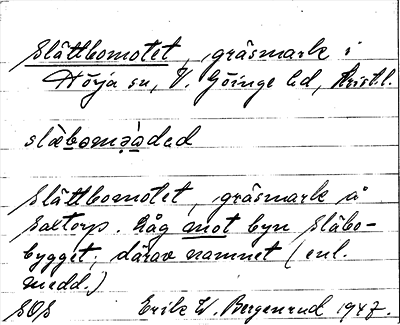 Slättbomotet, gräsmark i
Hörja sn, V. Göinge hd, Krist.l.
släbomə̀àdəd
Slättbomotet, gräsmark å
Saxtorp. Låg mot byn Släbo-
bygget, därav namnet (enl.
medd.)
SOS Erik W. Bergenrud 1947.